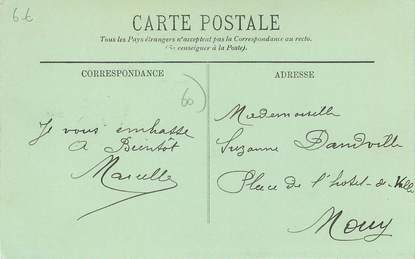 6-6
CARTE POSTALE
Tous les Pays étrangers n'acceptent pas la Correspondance au recto.
(Se renseigner à la Poste).
CORRESPONDANCE
60
Je vous embrasse
A Bientot
Marcelle
ADRESSE
Mademoiselle
Suzanne Dandville
Place de l'hotel-de-Ville
Mouy